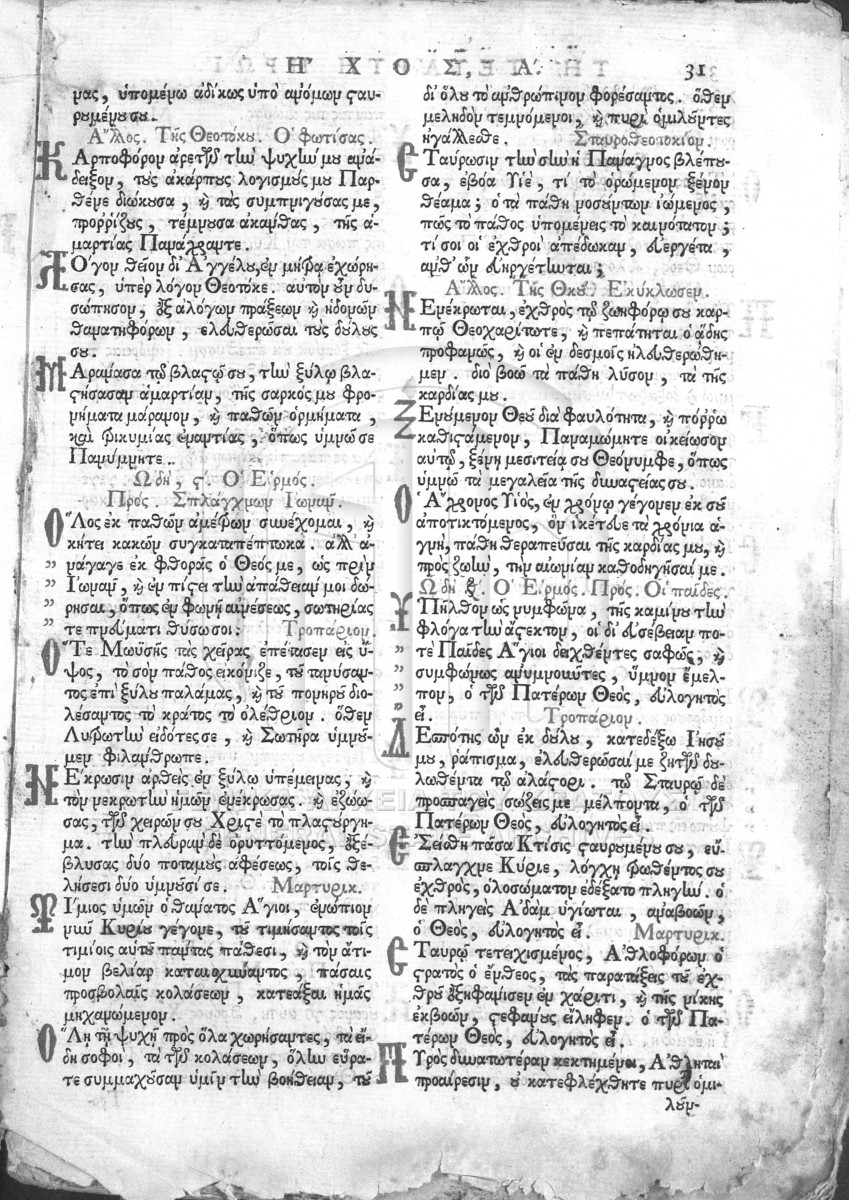 ΗΧΟΣ, Α. 31
μας, ὑπομένω ἀδίκως ὑπὸ ἀνόμων ϛαυ-
ρυμένυ συ.
Ἄλλος. Τῆς Θεοτόκυ. Ὁ φωτίσας.
ΚΑρποφόρον ἀρετῶν τὴν ψυχήν μυ ἀνά-
δειξον, τὺς ἀκάρπυς λογισμύς μυ Παρ-
θένε διώκυσα, ϗ τὰς συμπνιγύσας με,
προῤῥίζυς, τέμνυσα ἀκάνθας, τῆς ἁ-
μαρτίας Πανάχραντε.
ΛΟγον θεῖον δι' Ἀγγέλυ, ἐν μήτρᾳ ἐχώρη-
σας, ὑπὲρ λόγον Θεοτόκε. αὐτὸν ὖν δυ-
σώπησον, ἐξ ἀλόγων πράξεων ϗ ἡδονῶν
θανατηφόρων, ἐλευθερῶσαι τὺς δύλυς
συ.
ΜΑρανασα τῷ βλαϛῷ συ, τὴν ξύλῳ βλα-
ϛήσασαν ἁμαρτίαν, τῆς σαρκός μυ φρο-
νήματα μάρανον, ϗ παθῶν ὁρμήματα,
καὶ τρικυμίας ἐναντίας, ὅπως ὑμνῶ σε
Πανύμνητε.
Ὠδὴ, ϛ. Ὁ Εἱρμός.
Πρός. Σπλάγχνων Ἰωνᾶν.
ὍΛος ἐκ παθῶν ἀμέτρων συνέχομαι, ϗ
κήτει κακῶν συγκαταπέπτωκα. ἀλλ' ἀ-
νάγαγε ἐκ φθορᾶς ὁ Θεός με, ὡς πρὶν
Ἰωνᾶν, ϗ ἐν πίϛει τὴν ἀπάθειάν μοι δώ-
ρησαι, ὅπως ἐν φωνῇ αἰνέσεως, σωτηρίας
τε πνεύματι θύσω σοι. Τροπάριον.
ὍΤε Μωϋσῆς τὰς χεῖρας ἐπέτασεν εἰς ὕ-
ψος, τὸ σὸν πάθος εἰκόνιζε, τῦ τανύσαν-
τος ἐπὶ ξύλυ παλάμας, ϗ τῦ πονηρῦ διο-
λέσαντος τὸ κράτος τὸ ὀλέθριον. ὅθεν
Λυτρωτὴν εἰδότες σε, ϗ Σωτῆρα ὑμνῦ-
μεν φιλάνθρωπε.
ΝΕκρωσιν ἀρθεὶς ἐν ξύλῳ ὑπέμεινας, ϗ
τὸν νεκρωτὴν ἡμῶν ἐνέκρωσας. ϗ ἐζώω-
σας, τῶν χειρῶν συ Χριϛὲ τὸ πλαϛύργη-
μα. τὴν πλευρὰν δὲ ὀρυττόμενος, ἐξέ-
βλυσας δύο ποταμὺς ἀφέσεως, τοῖς θε-
λήσεσι δύο ὑμνῦσί σε. Μαρτυρικ.
ΤΙμιος ὑμῶν ὁ θάνατος Ἅγιοι, ἐνώπιον
νῦν Κυρίυ γέγονε, τῦ τιμήσαντος τοῖς
τιμίοις αὐτῦ πάντας πάθεσι, ϗ τὸν ἄτι-
μον βελίαρ καταισχύναντος, πάσαις
προσβολαῖς κολάσεων, κατεάξαι ἡμᾶς
μηχανώμενον.
ὍΛῃ τῇ ψυχῇ πρὸς ὅλα χωρήσαντες, τὰ εἴ-
δη σοφοὶ, τὰ τῶν κολάσεων, ὅλην εὕρα-
τε συμμαχῦσαν ὑμῖν τὴν βοήθειαν, τῦ
δι' ὅλυ τὸν ἄνθρωπινον φορέσαντος. ὅθεν
μεληδὸν τεμνόμενοι, ϗ πυρὶ ὁμιλῦντες
ἠγάλλεσθε. Σταυροθεοτοκίον.
ΣΤαύρωσιν τὴν σὴν ἡ Πάναγνος βλέπυ-
σα, ἐβόα Υἱὲ, τί τὸ ὁρώμενον ξένον
θέαμα; ὁ τὰ πάθη νοσύντων ἰώμενος,
πῶς τὸ πάθος ὑπομένεις τὸ καινότατον;
τί σοι οἱ ἐχθροὶ ἀπέδωκαν, εὐεργέτα,
ἀνθ' ὧν εὐηργέτηνται;
Ἄλλος. Τῆς Θκυ. Ἐκύκλωσεν.
ΝΕνέκρωται, ἐχθρὸς τῷ ζωηφόρῳ συ καρ-
πῷ Θεοχαρίτωτε, ϗ πεπάτηται ὁ ᾅδης
προφανῶς, ϗ οἱ ἐν δεσμοῖς ἠλευθερώθη-
μεν. διὸ βοῶ τὰ πάθη λῦσον, τὰ τῆς
καρδίας μυ.
ΞΕνύμενον Θεῦ διὰ φαυλότητα, ϗ πόῤῥω
καθιϛάμενον, Παναμώμητε οἰκείωσον
αὐτῷ, ξένῃ μεσιτείᾳ συ Θεόνυμφε, ὅπως
ὑμνῶ τὰ μεγαλεῖα τῆς δυναϛείας συ.
ὉἌχρονος Υἱὸς, ἐν χρόνῳ γέγονεν ἐκ σῦ
ἀποτικτόμενος, ὃν ἱκέτευε τὰ χρόνια ἁ-
γνὴ, πάθη θεραπεῦσαι τῆς καρδίας μυ, ϗ
πρὸς ζωὴν, τὴν αἰωνίαν καθοδηγῆσαί με.
Ὠδὴ ζ. Ὁ Εἱρμός. Πρός. Οἱ παῖδες.
ὙΠῆλθον ὡς νυμφῶνα, τῆς καμίνυ τὴν
φλόγα τὴν ἄϛεκτον, οἱ δι' εὐσέβειαν πο-
τὲ Παῖδες Ἅγιοι δειχθέντες σαφῶς, ϗ
συμφώνως ἀνυμνῦντες, ὕμνον ἔμελ-
πον, ὁ τῶν Πατέρων Θεὸς, εὐλογητὸς
εἶ. Τροπάριον.
ΔΕσπότης ὢν ἐκ δύλυ, κατεδέξω Ἰησῦ
μυ, ῥάπισμα, ἐλευθερῶσαί με ζητῶν δυ-
λωθέντα τῷ ἀλάϛορι. τῷ Σταυρῷ δὲ
προσπαγεὶς σώζεις με μέλποντα, ὁ τῶν
Πατέρων Θεὸς, εὐλογητὸς εἶ.
ἘΣείσθη πᾶσα Κτίσις ϛαυρυμένυ συ, εὔ-
σπλαγχνε Κύριε, λόγχῃ τρωθέντος συ
ἐχθρὸς, ὁλοσώματον ἐδέξατο πληγήν. ὁ
δὲ πληγεὶς Ἀδὰμ ὑγίωται, ἀναβοῶν,
ὁ Θεὸς, εὐλογητὸς εἶ. Μαρτυρικ.
ΣΤαυρῷ τετειχισμένος, Ἀθλοφόρων ὁ
ϛρατὸς ὁ ἔνθεος, τὰς παρατάξεις τῦ ἐχ-
θρῦ ἐξηφάνισεν ἐν χάριτι, ϗ τῆς νίκης
ἐκβοῶν, ϛεφάνυς εἴληφεν. ὁ τῶν Πα-
τέρων Θεὸς, εὐλογητὸς εἶ.
ΠΥρὸς δυνατωτέραν κεκτημένοι, Ἀθληταὶ
προαίρεσιν, ὐ κατεφλέχθητε πυρὶ ὁμι-
λῦν-